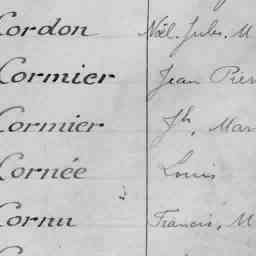 Cordon Noël. Jules. M
Cormier Jean Pier
Cormier Jh, Mar
Cornée Louis
Cornu Francis, M